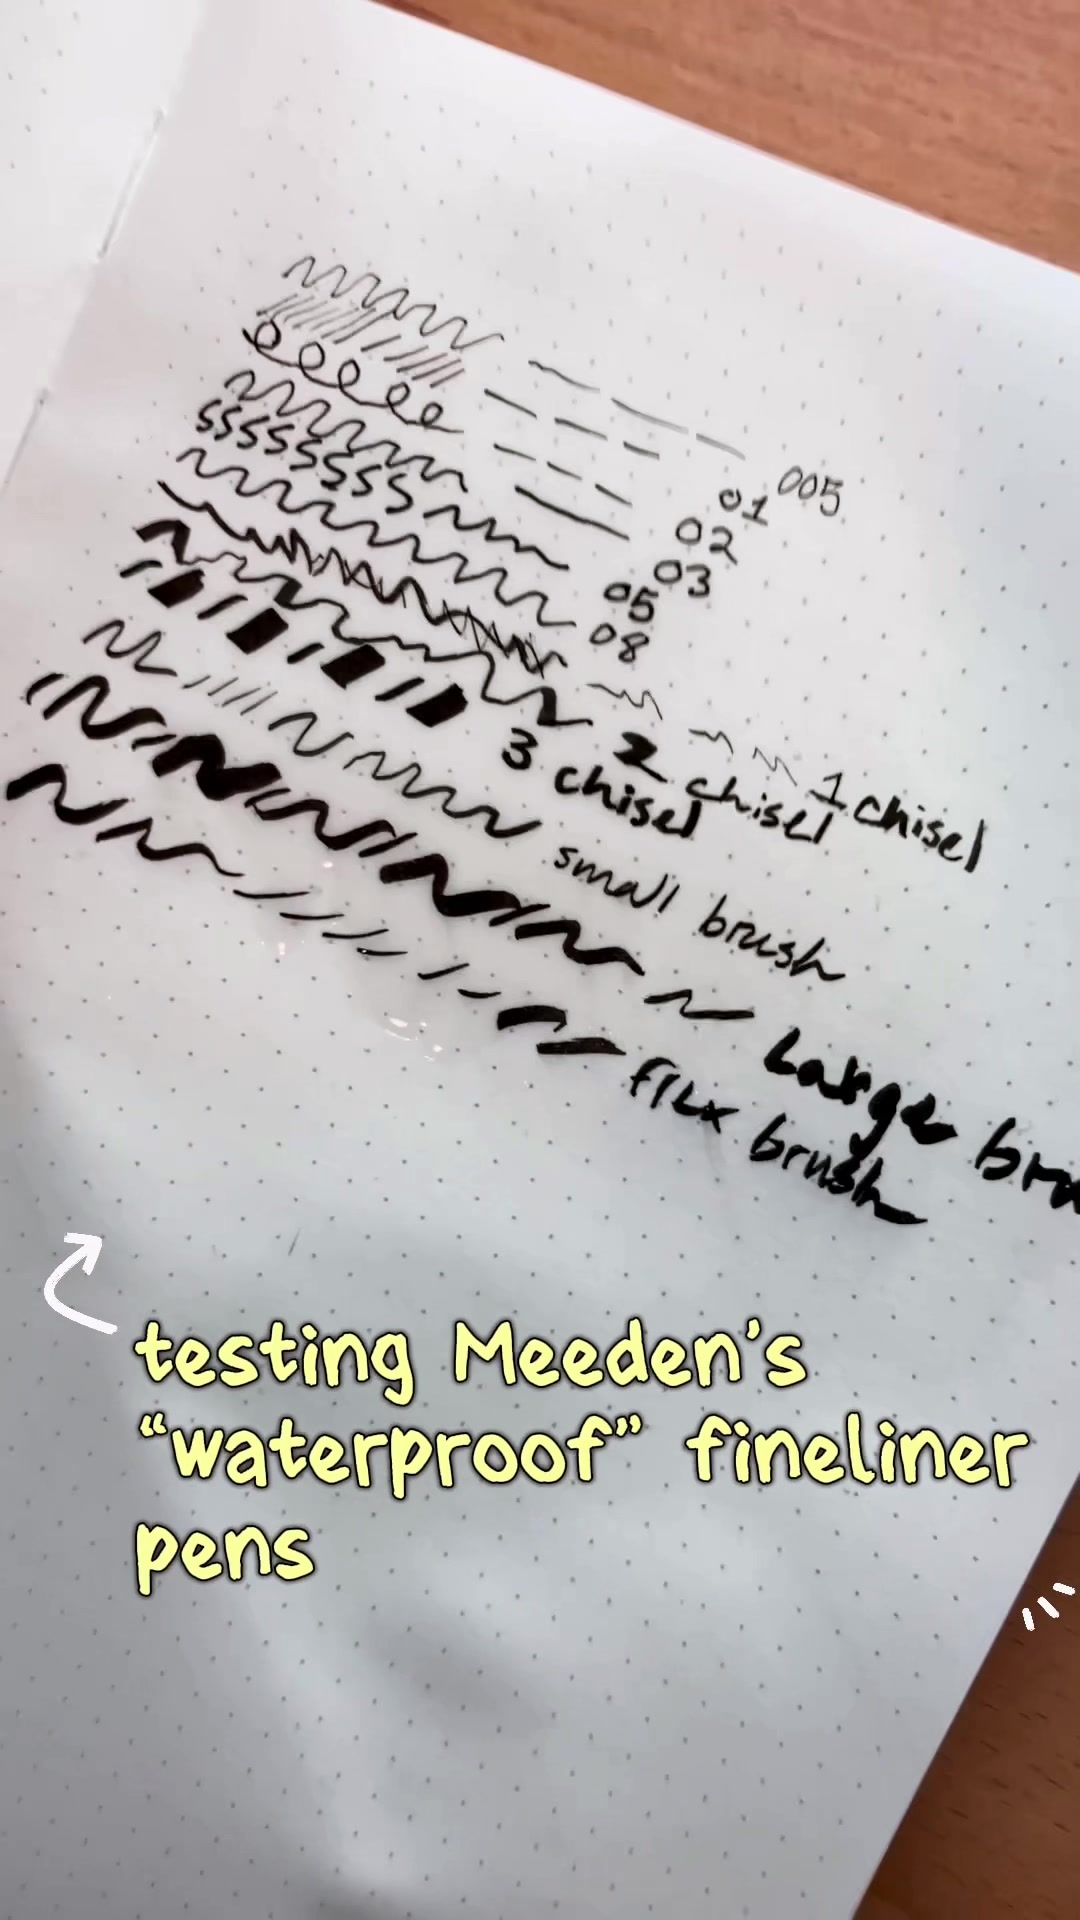 005
01
02
03
05
08
1 chisel
2 chisel
3 chisel
small brush
Larger
flex brush
testing Meeden's
“waterproof” fineliner
pens